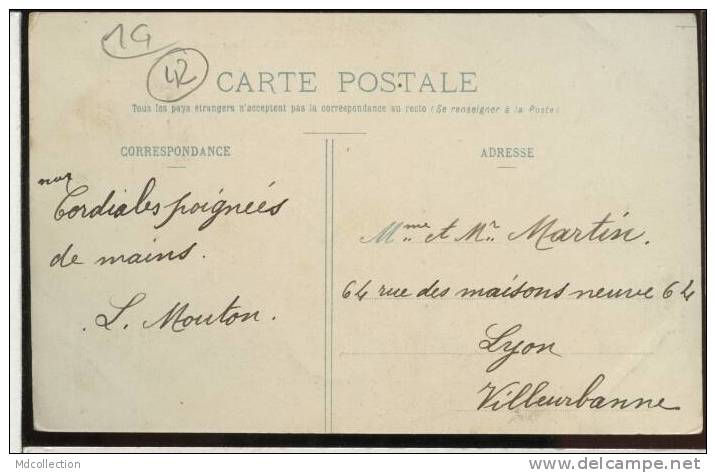 19
42
CARTE POSTALE
Tous les pays étrangers n'acceptent pas la correspondance au recto (Se renseigner à la Poste)
CORRESPONDANCE
nos
Cordiales poignées
de mains.
L. Mouton.
ADRESSE
Mme et Mr Martin.
64 rue des maisons neuve 64
Lyon
Villeurbanne
Mdcollection
www.delcampe.net